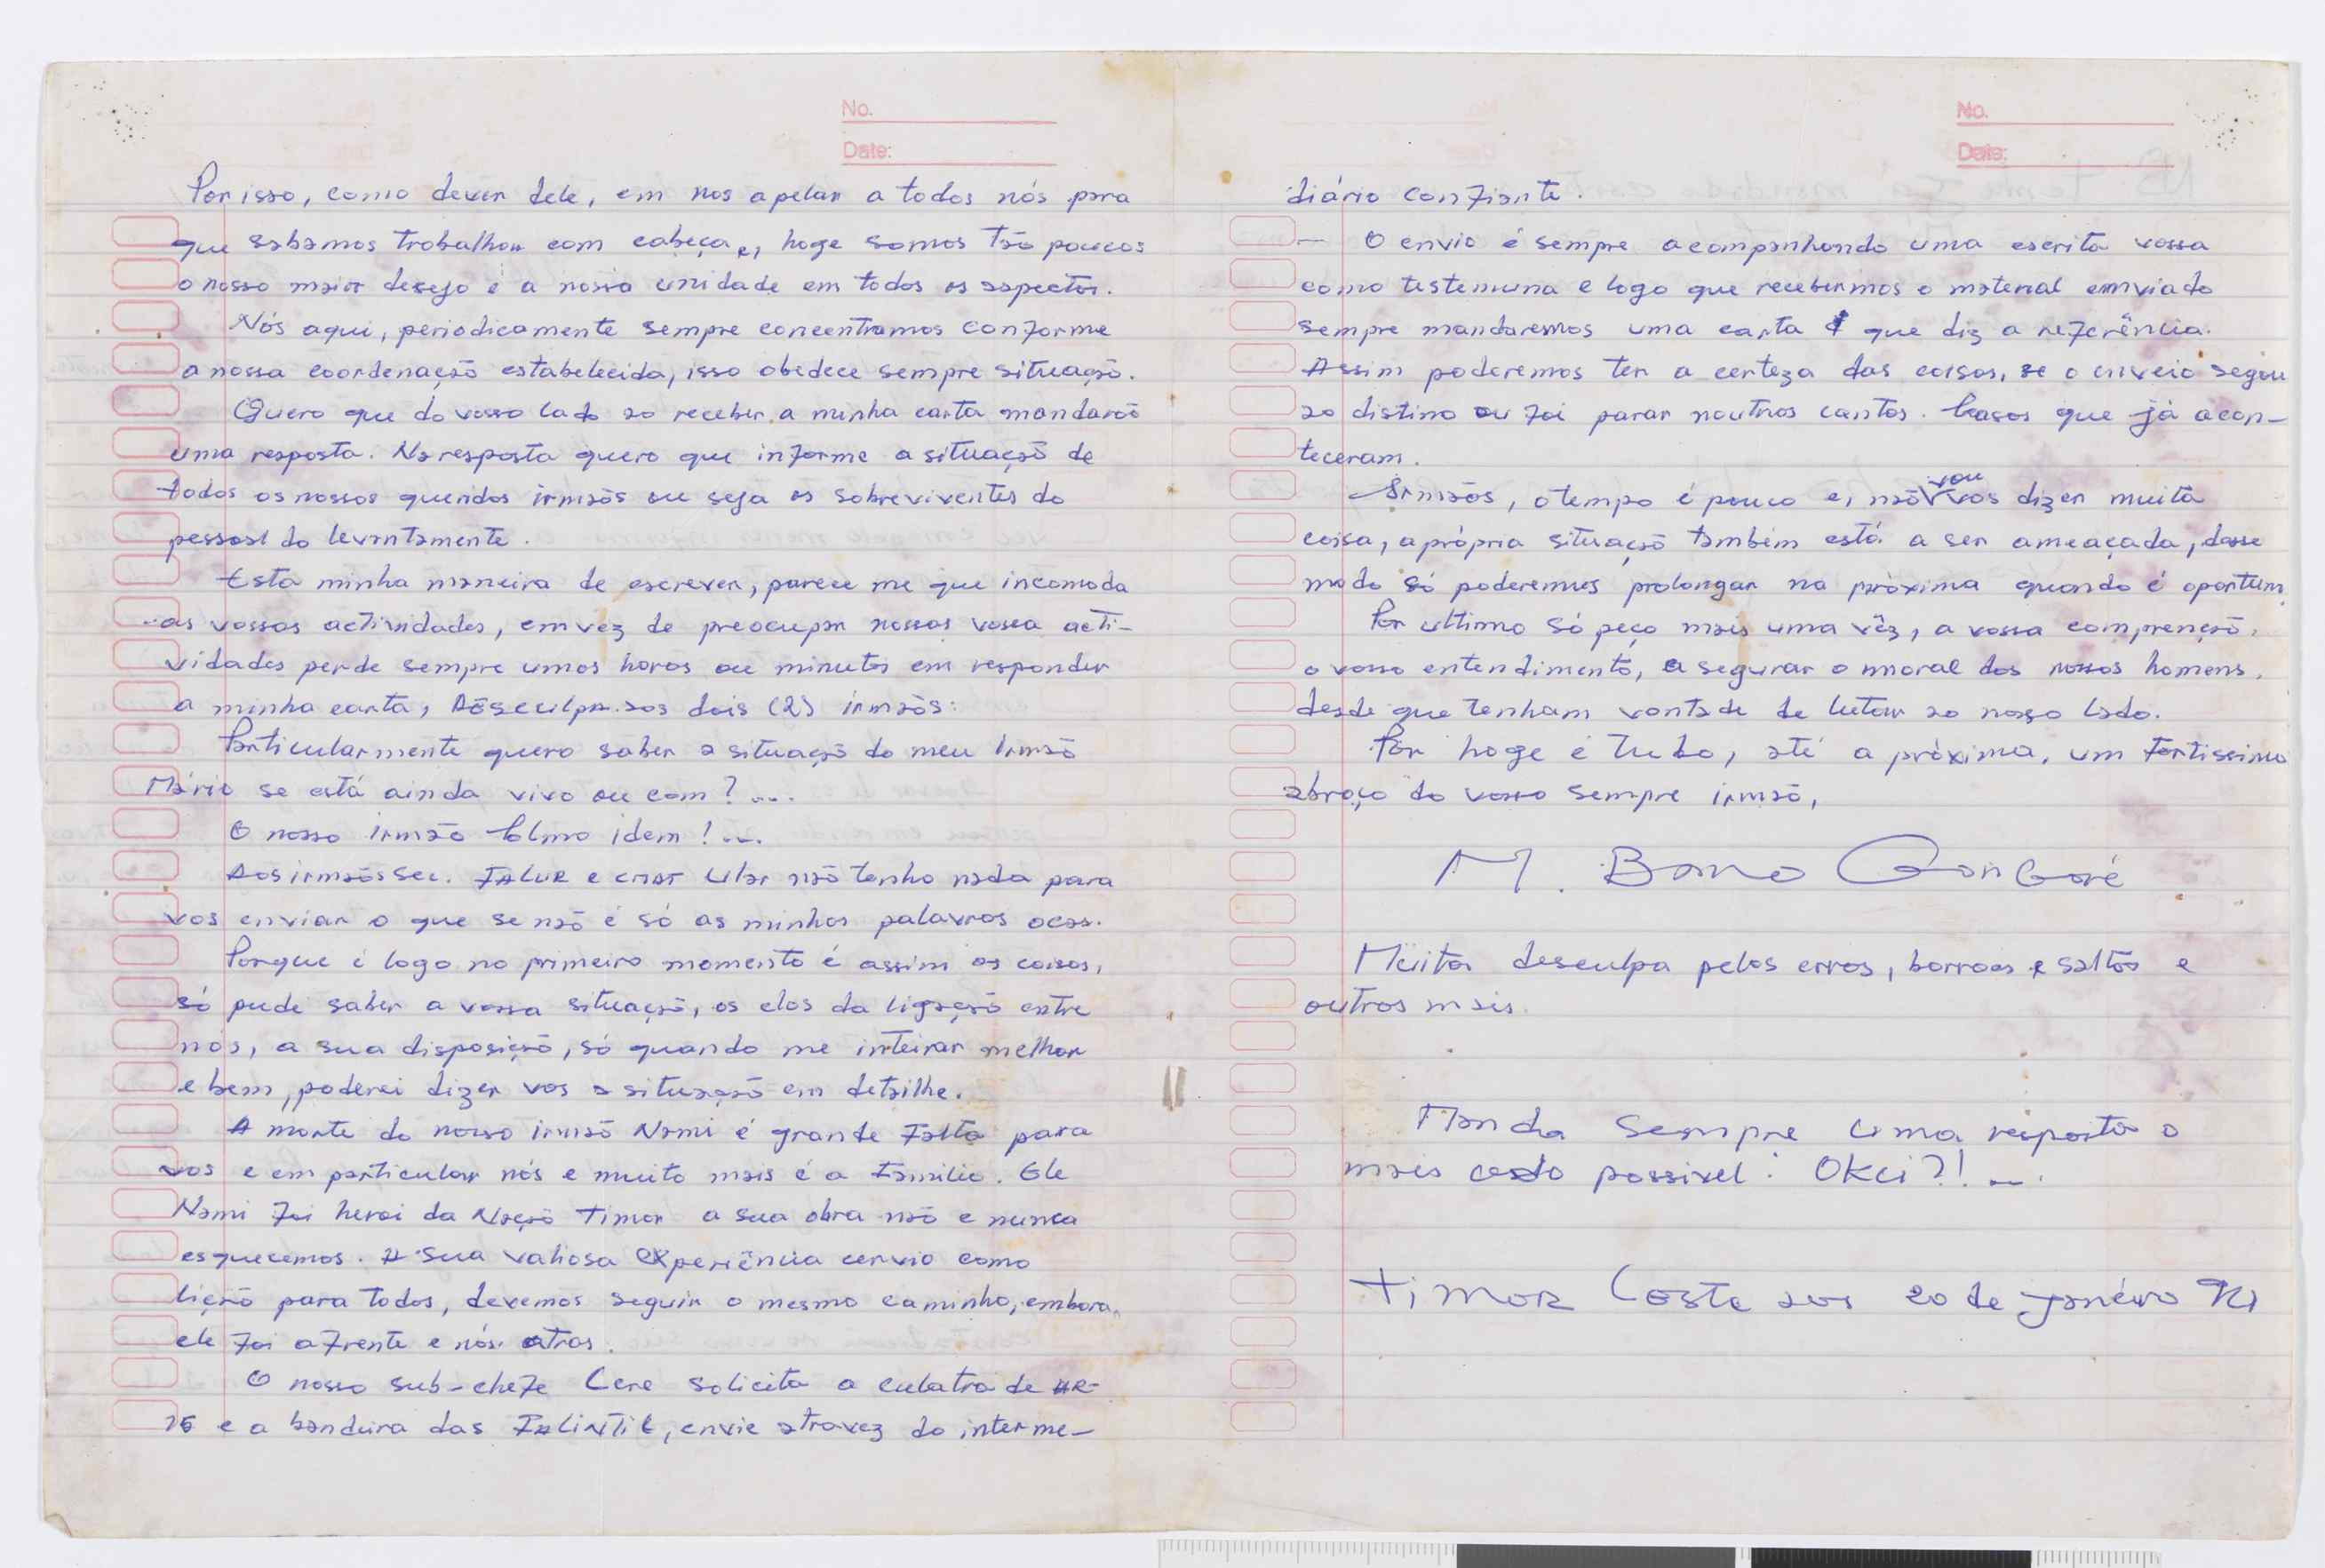 No.
Date:
Por isso, como dever dele, em nos apelar a todos nós para
que sabamos trabalhar com cabeça e, hoge somos tão poucos
o nosso maior desejo é a nossa unidade em todos os aspectos.
Nós aqui, periodicamente sempre concentramos conforme
a nossa coordenação estabelecida, isso obedece sempre situação.
Quero que do vosso lado ao receber a minha carta mandarão
uma resposta. Na resposta quero que informe a situação de
todos os nossos queridos irmãos ou seja os sobreviventes do
pessoal do levantamente.
Esta minha maneira de escrever, parece me que incomoda
as vossas actividades, em vez de preocupar nossas vossa acti-
vidades perde sempre umas horas ou minutos em responder
a minha carta, Desculpa aos dois (2) irmãos:
Particularmente quero saber a situação do meu irmão
Mário se está ainda vivo ou com? ....
O nosso irmão Colmo idem! ....
Aos irmãos Sec. FALUR e cmdt Ular não tenho nada para
vos enviar o que se não é só as minhas palavras ocas.
Porque é logo no primeiro momento é assim as coisas,
só pude saber a vossa situação, os elos da ligação entre
nós, a sua disposição, só quando me inteirar melhor
e bem, poderei dizer vos a situação em detailhe.
A morte do nosso irmão Nami é grande Falta para
vos e em particular nós e muito mais é a Familia. Ele
Nami foi heroi da Nação Timor a sua obra não e nunca
esquecemos. A sua valiosa experiência cervio como
lição para todos, devemos seguir o mesmo caminho, embora,
ele foi afrente e nós atras.
O nosso sub-chefe Cere solicita a culatra de AR-
15 e a bandeira das FALINTIL, envie atravez do interme-
No.
Date:
diário confiante.
— O envio é sempre acompanhando uma escrita vossa
como testemuna e logo que recebermos o material emviado
sempre mandaremos uma carta que diz a referência.
Assim poderemos ter a certeza das coisas, se o enveio segou
ao distino ou foi parar noutros cantos. Casos que já acon-
teceram.
Irmãos, o tempo é pouco e, não vou vos dizer muita
coisa, a própria situação também está a ser ameaçada, desse
modo só poderemos prolongar na próxima quando é oportum
Por ultimo só peço mais uma vêz, a vossa comprenção,
o vosso entendimento, a segurar o moral dos nossos homens,
desde que tenham vontade de lutar ao nosso lado.
Por hoge é tudo, até a próxima, um fortissimo
abraço do vosso sempre irmão,
M. Bano
Muita desculpa pelos erros, borroes e saltos e
outros mais.
Manda sempre uma resposta o
mais cedo possivel. Okci?! ....
Timor Leste aos 20 de Janéiro